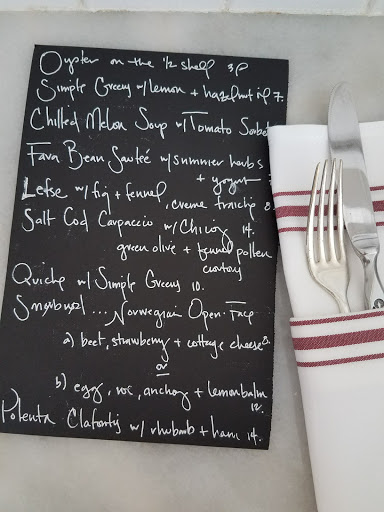 Oyster on the 1/2 shelf 3p
Simple Greens w/ lemon + hazelnut 7.
Chilled Melon Soup w/ Tomato Sorbet
Fava Bean Sauteé w/ summer herbs
+ yogurt
Lefse w/ fig + fennel, creme fraiche 8
Salt Cod Carpaccio w/ 14.
green olive + fennel pollen
Quiche w/ Simple Greens 10.
... Norwegian Open-Face
a) beet, strawberry + cottage cheese
or
b) egg, roe, anchovy + lemonbalm
12.
Polenta w/ rhubarb + ham 14.